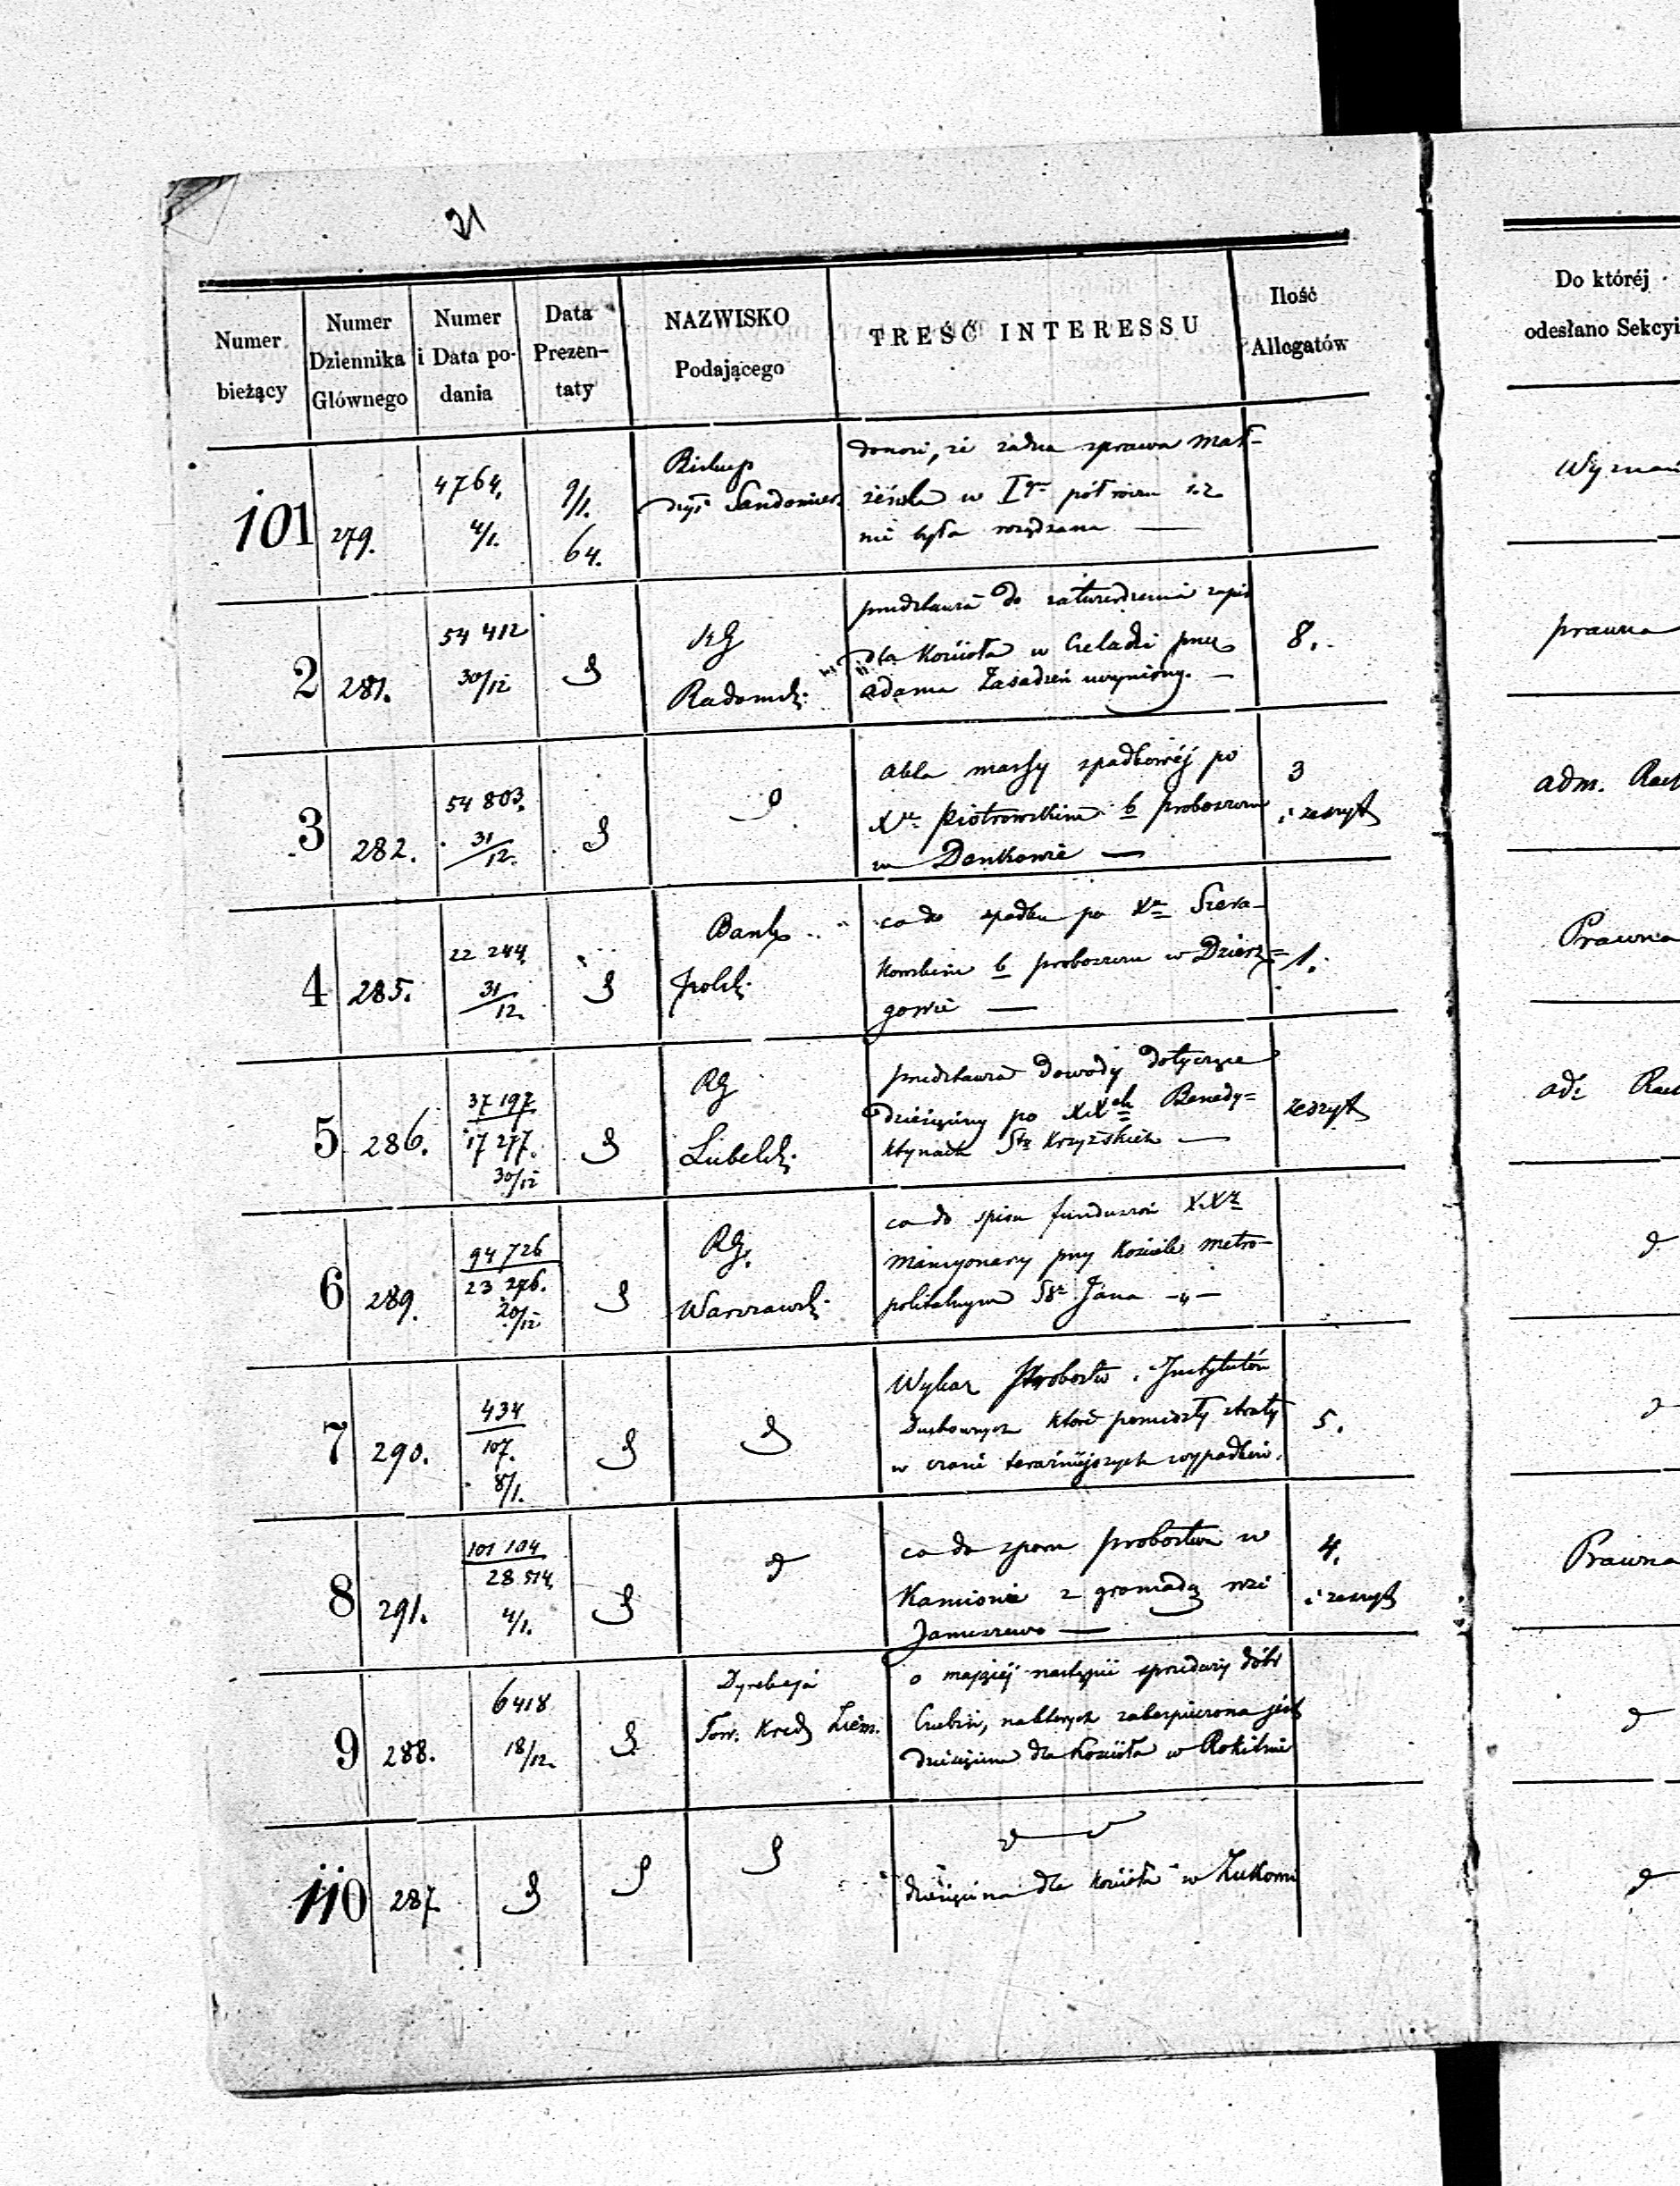 21
Numer bieżący
Numer Dziennika Głównego
Numer i Data podania
Data Prezentaty
NAZWISKO Podającego
TREŚĆ INTERESSU
Ilość Allegatów
Do któréj
odesłano Sekcyi
101 279. 4764. 4/1. 9/1. 64.
Biskup
Sandomier.
donosi, że żadna sprawa mał-
żeńska w I
nie była
2 281. 54 412 30/12
RG
Radomski
przedstawia do zatwierdzenia zapis
dla Kościoła w Czeladzi przez
Adama uczyniony. —
8.
prawna
3 282. 54 803. 31/12.
akta massy spadkowéj po
Piotrowskim b proboszczu
w Dankowie —
3
i zeszyt
adm.
4 285. 22 244. 31/12.
Bank
polski
co do spadku po
b proboszczu w Dzierz=
gowie —
1.
Prawna
5 286. 37 197 17 277. 30/12
RG
Lubelski
przedstawia dowody dotyczące
dziesięciny po XX Benedy=
ktynach
zeszyt
6 289. 94 726 23 276. 20/12
RG.
Warszawski
co do spisu funduszów XX
mansyonarzy przy Kościele metro-
politalnym Jana
7 290. 434 107. 8/1.
Wykaz Probostw i Instytutów
Duchownych które poniosły straty
w czasie teraźniejszych wypadków.
5.
8 291. 101 104 28 514. 4/1.
co do sporu probostwa w
Kamionie z gromadą wsi
Januszewo —
4.
i zeszyt
Prawna
9 288. 6418 18/12.
Dyrekcja
Tow. Kred Ziem.
o mającéj nastąpić sprzedaży dóbr
na których zabezpieczona jest
dziesięcina dla Kościoła w Rokitnie
110 287.
dziesięcina dla kościoła w